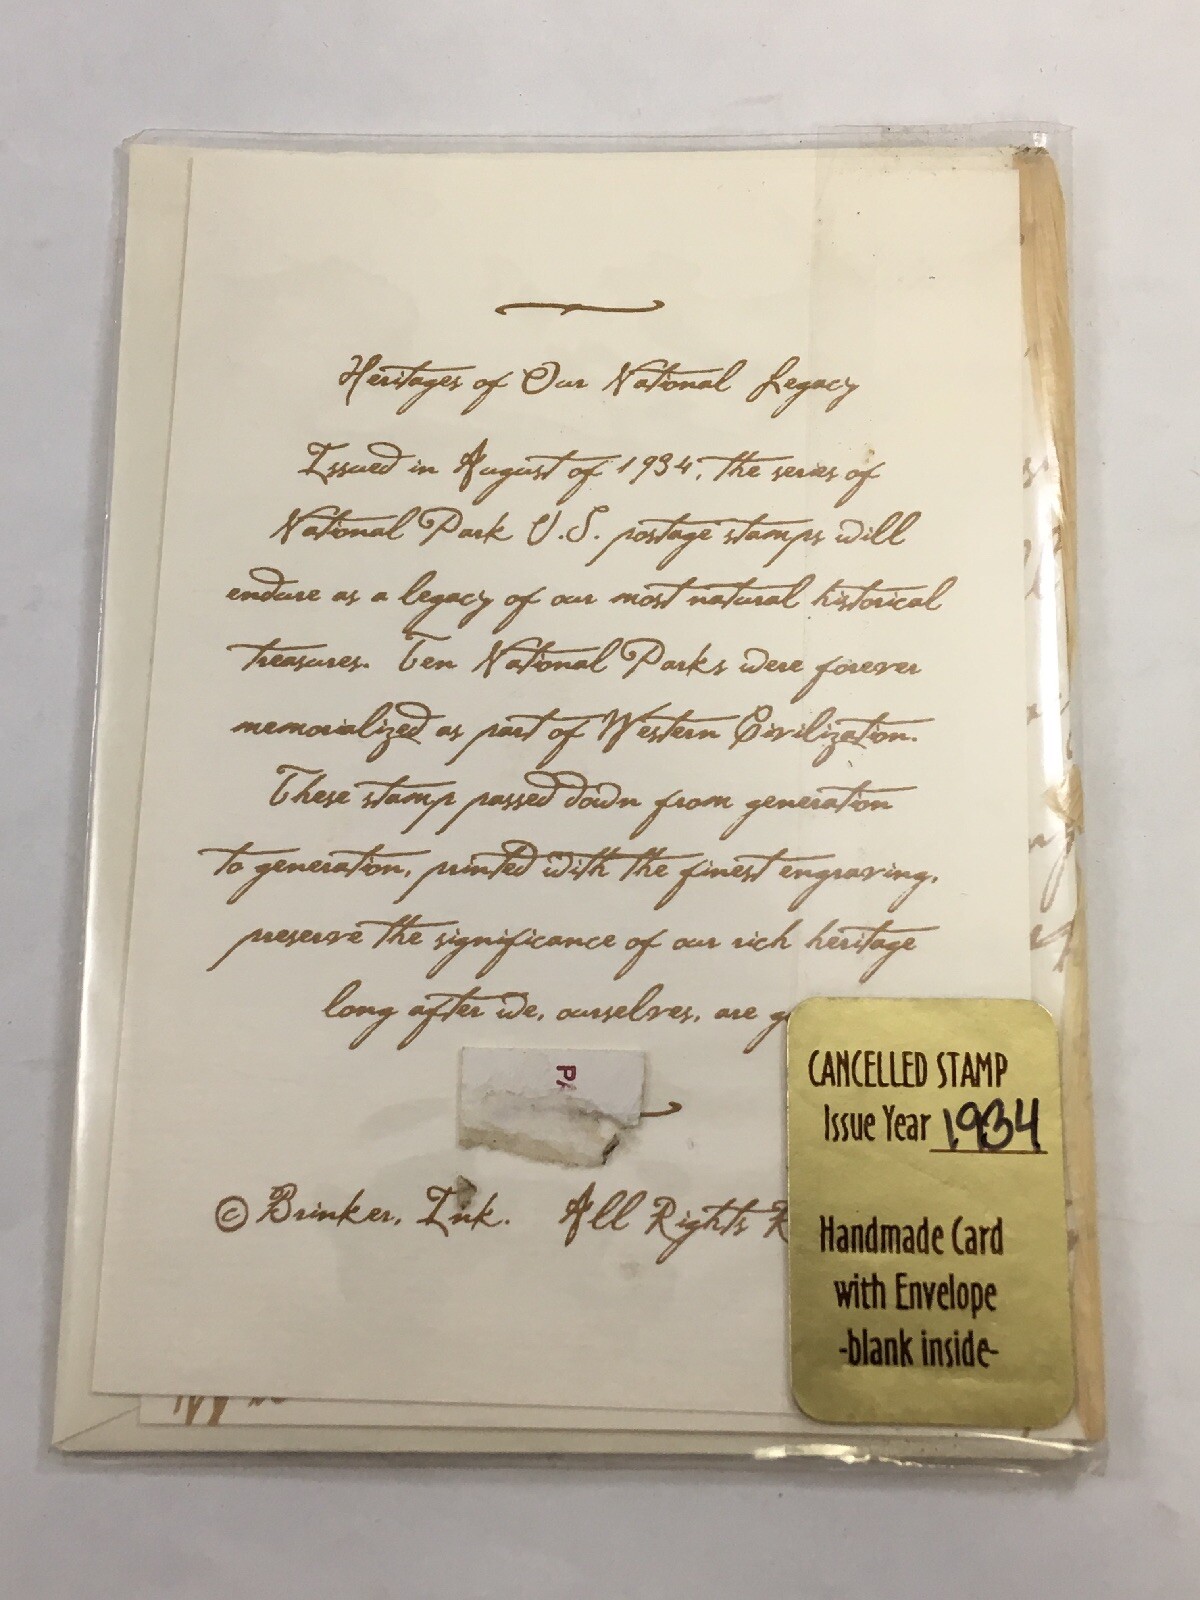 Heritages of Our National Legacy
Issued in August of 1934, the series of
National Park U.S. postage stamps will
endure as a legacy of our most natural historical
treasures. Ten National Parks were forever
memorialized as part of Western Civilization.
These stamp passed down from generation
to generation, printed with the finest engraving,
preserve the significance of our rich heritage
long after we, ourselves, are g
PA
© Brinker, Ink. All Rights R
CANCELLED STAMP
Issue Year 1934
Handmade Card
with Envelope
-blank inside-